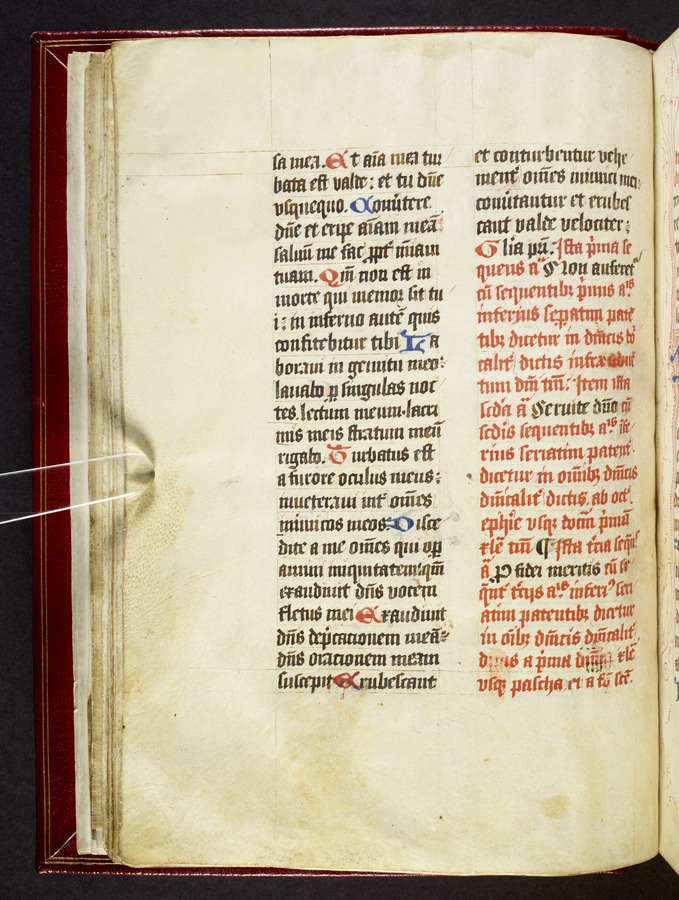 sa mea. Et aīa mea tur
bata est valde: et tu dn̄e
vsquequo. Conu̾tere
dn̄e et eripe aīam meā:
saluū me fac ꝓpt̾ mīam
tuam. Qm̄ non est in
morte qui memor sit tu
i: in inferno autē quis
confitebitur tibi. La
boraui in gemitu meo:
lauabo ꝑ singulas noc
tes lectum meum lacri
mis meis stratum meū
rigabo. Turbatus est
a furore oculus meus:
inueteraui int̾ om̄es
inimicos meos. Disce
dite a me om̄es qui oꝑ
amini iniquitatem: qm̄
exaudiuit dn̄s vocem
fletus mei. Exaudiuit
dn̄s dep̄cationem meā:
dn̄s orationem meam
suscepit. Erubescant
et conturbentur vehe
ment̾ om̄es inimici mei:
conu̾tantur et erubes
cant valde velociter:
Glia pr̄i. Ista p̄ma se
quens an̄ Non auferet̾
cū sequentibꝫ p̄mus
inferius se patent
tibꝫ dicetur in dn̄icis
dictis infra
tum dn̄i Item ista
scd̄a an̄ Seruite dn̄o cū
scd̄is sequentibꝫ
rius seriatim patent̾
dicetur in om̄ibꝫ dn̄icis
dn̄icalit̾ dictis, ab oct̾
ephi̅e vsqꝫ p̄mā
xle Ista t̾cia sequē̾
an̄ Pro fidei meritis cū
quēt t̾cijs inferi9
atim patentibꝫ dicetur
in oībꝫ dn̄icis dn̄icalit̾
dictis a p̄ma xle
vsqꝫ pascha et a